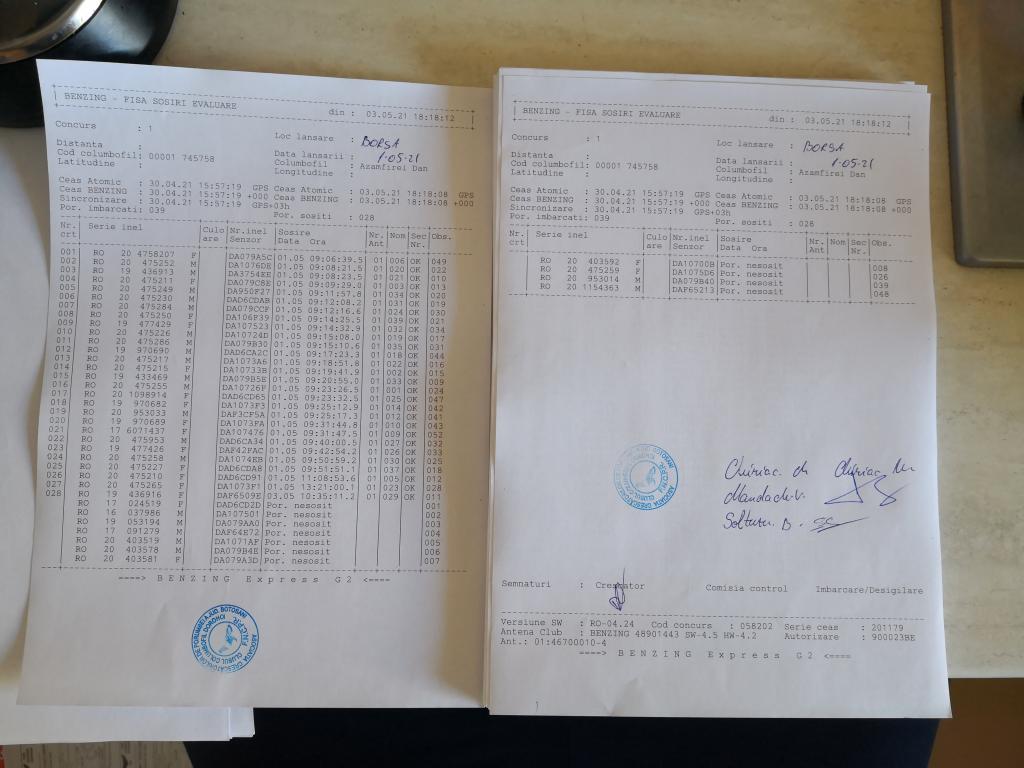 BENZING - FISA SOSIRI EVALUARE
din : 03.05.21 18:18:12
Concurs : 1
Loc lansare : BORSA
Distanta :
Data lansarii : 1-05-21
Cod columbofil: 00001 745758
Columbofil : Azamfirei Dan
Latitudine :
Longitudine :
Ceas Atomic : 30.04.21 15:57:19 GPS Ceas Atomic : 03.05.21 18:18:08 GPS
Ceas BENZING : 30.04.21 15:57:19 +000 Ceas BENZING : 03.05.21 18:18:08 +000
Sincronizare : 30.04.21 15:57:19 GPS+03h
Por. imbarcati: 039
Por. sositi : 028
Nr. crt Serie inel Culo are Nr.inel Senzor Sosire Data Ora Nr. Ant Nom Sec Nr. Obs.
001 RO 20 4758207 F DA079A5C 01.05 09:06:39.5 01 006 OK 049
002 RO 20 475252 M DA1076DE 01.05 09:08:21.5 01 020 OK 022
003 RO 19 436913 M DA3754EE 01.05 09:08:23.5 01 021 OK 010
004 RO 20 475211 F DA079C8E 01.05 09:09:29.0 01 003 OK 013
005 RO 20 475249 M DA950F27 01.05 09:11:57.8 01 034 OK 020
006 RO 20 475230 M DAD6CDAB 01.05 09:12:08.2 01 031 OK 019
007 RO 20 475284 M DA079CCF 01.05 09:12:16.6 01 024 OK 030
008 RO 20 475250 F DA106F39 01.05 09:14:25.5 01 039 OK 021
009 RO 19 477429 F DA107523 01.05 09:14:32.9 01 032 OK 034
010 RO 20 475226 M DA10724D 01.05 09:15:08.0 01 019 OK 017
011 RO 20 475286 M DA079B30 01.05 09:15:10.6 01 035 OK 031
012 RO 19 970690 M DAD6CA2C 01.05 09:17:23.3 01 018 OK 044
013 RO 20 475217 M DA1073A6 01.05 09:18:51.8 01 022 OK 016
014 RO 20 475215 F DA10733B 01.05 09:19:41.9 01 002 OK 015
015 RO 19 433469 M DA079B5E 01.05 09:20:55.0 01 033 OK 009
016 RO 20 475255 M DA10726F 01.05 09:23:26.5 01 001 OK 024
017 RO 20 1098914 F DAD6CD65 01.05 09:23:32.5 01 025 OK 047
018 RO 19 970682 F DA1073F3 01.05 09:25:12.9 01 014 OK 042
019 RO 20 953033 M DAF3CF5A 01.05 09:25:17.3 01 012 OK 041
020 RO 19 970689 F DA1073FA 01.05 09:31:44.8 01 010 OK 043
021 RO 17 6071437 F DA107476 01.05 09:31:47.5 01 009 OK 052
022 RO 20 475953 M DAD6CA34 01.05 09:40:00.5 01 027 OK 032
023 RO 19 477426 F DAF42FAC 01.05 09:42:54.2 01 026 OK 033
024 RO 20 475258 M DA1074EB 01.05 09:50:59.2 01 030 OK 025
025 RO 20 475227 F DAD6CDA8 01.05 09:51:51.1 01 037 OK 018
026 RO 20 475210 F DAD6CD91 01.05 11:08:53.6 01 005 OK 012
027 RO 20 475265 F DA1073F1 01.05 13:21:00.1 01 023 OK 028
028 RO 19 436916 F DAF6509E 03.05 10:35:11.2 01 029 OK 011
RO 17 024519 F DAD6CD2D Por. nesosit 001
RO 16 037986 M DA107501 Por. nesosit 002
RO 19 053194 M DA079AA0 Por. nesosit 003
RO 17 091279 M DAF64E72 Por. nesosit 004
RO 20 403519 M DA1071AF Por. nesosit 005
RO 20 403578 M DA079B4E Por. nesosit 006
RO 20 403581 F DA079A3D Por. nesosit 007
====> BENZING Express G2 <====
BENZING - FISA SOSIRI EVALUARE
din : 03.05.21 18:18:12
Concurs : 1
Loc lansare : BORSA
Distanta :
Data lansarii : 1-05-21
Cod columbofil: 00001 745758
Columbofil : Azamfirei Dan
Latitudine :
Longitudine :
Ceas Atomic : 30.04.21 15:57:19 GPS Ceas Atomic : 03.05.21 18:18:08 GPS
Ceas BENZING : 30.04.21 15:57:19 +000 Ceas BENZING : 03.05.21 18:18:08 +000
Sincronizare : 30.04.21 15:57:19 GPS+03h
Por. imbarcati: 039
Por. sositi : 028
Nr. crt Serie inel Culo are Nr.inel Senzor Sosire Data Ora Nr. Ant Nom Sec Nr. Obs.
RO 20 403592 F DA10700B Por. nesosit 008
RO 20 475259 F DA1075D6 Por. nesosit 026
RO 20 953014 M DA079B40 Por. nesosit 039
RO 20 1154363 M DAF65213 Por. nesosit 048
Semnaturi : Crescator Comisia control Imbarcare/Desigilare
Versiune SW : RO-04.24 Cod concurs : 058202 Serie ceas : 201179
Antena Club : BENZING 48901443 SW-4.5 HW-4.2 Autorizare : 900023BE
Ant.: 01:46700010-4
====> BENZING Express G2 <====